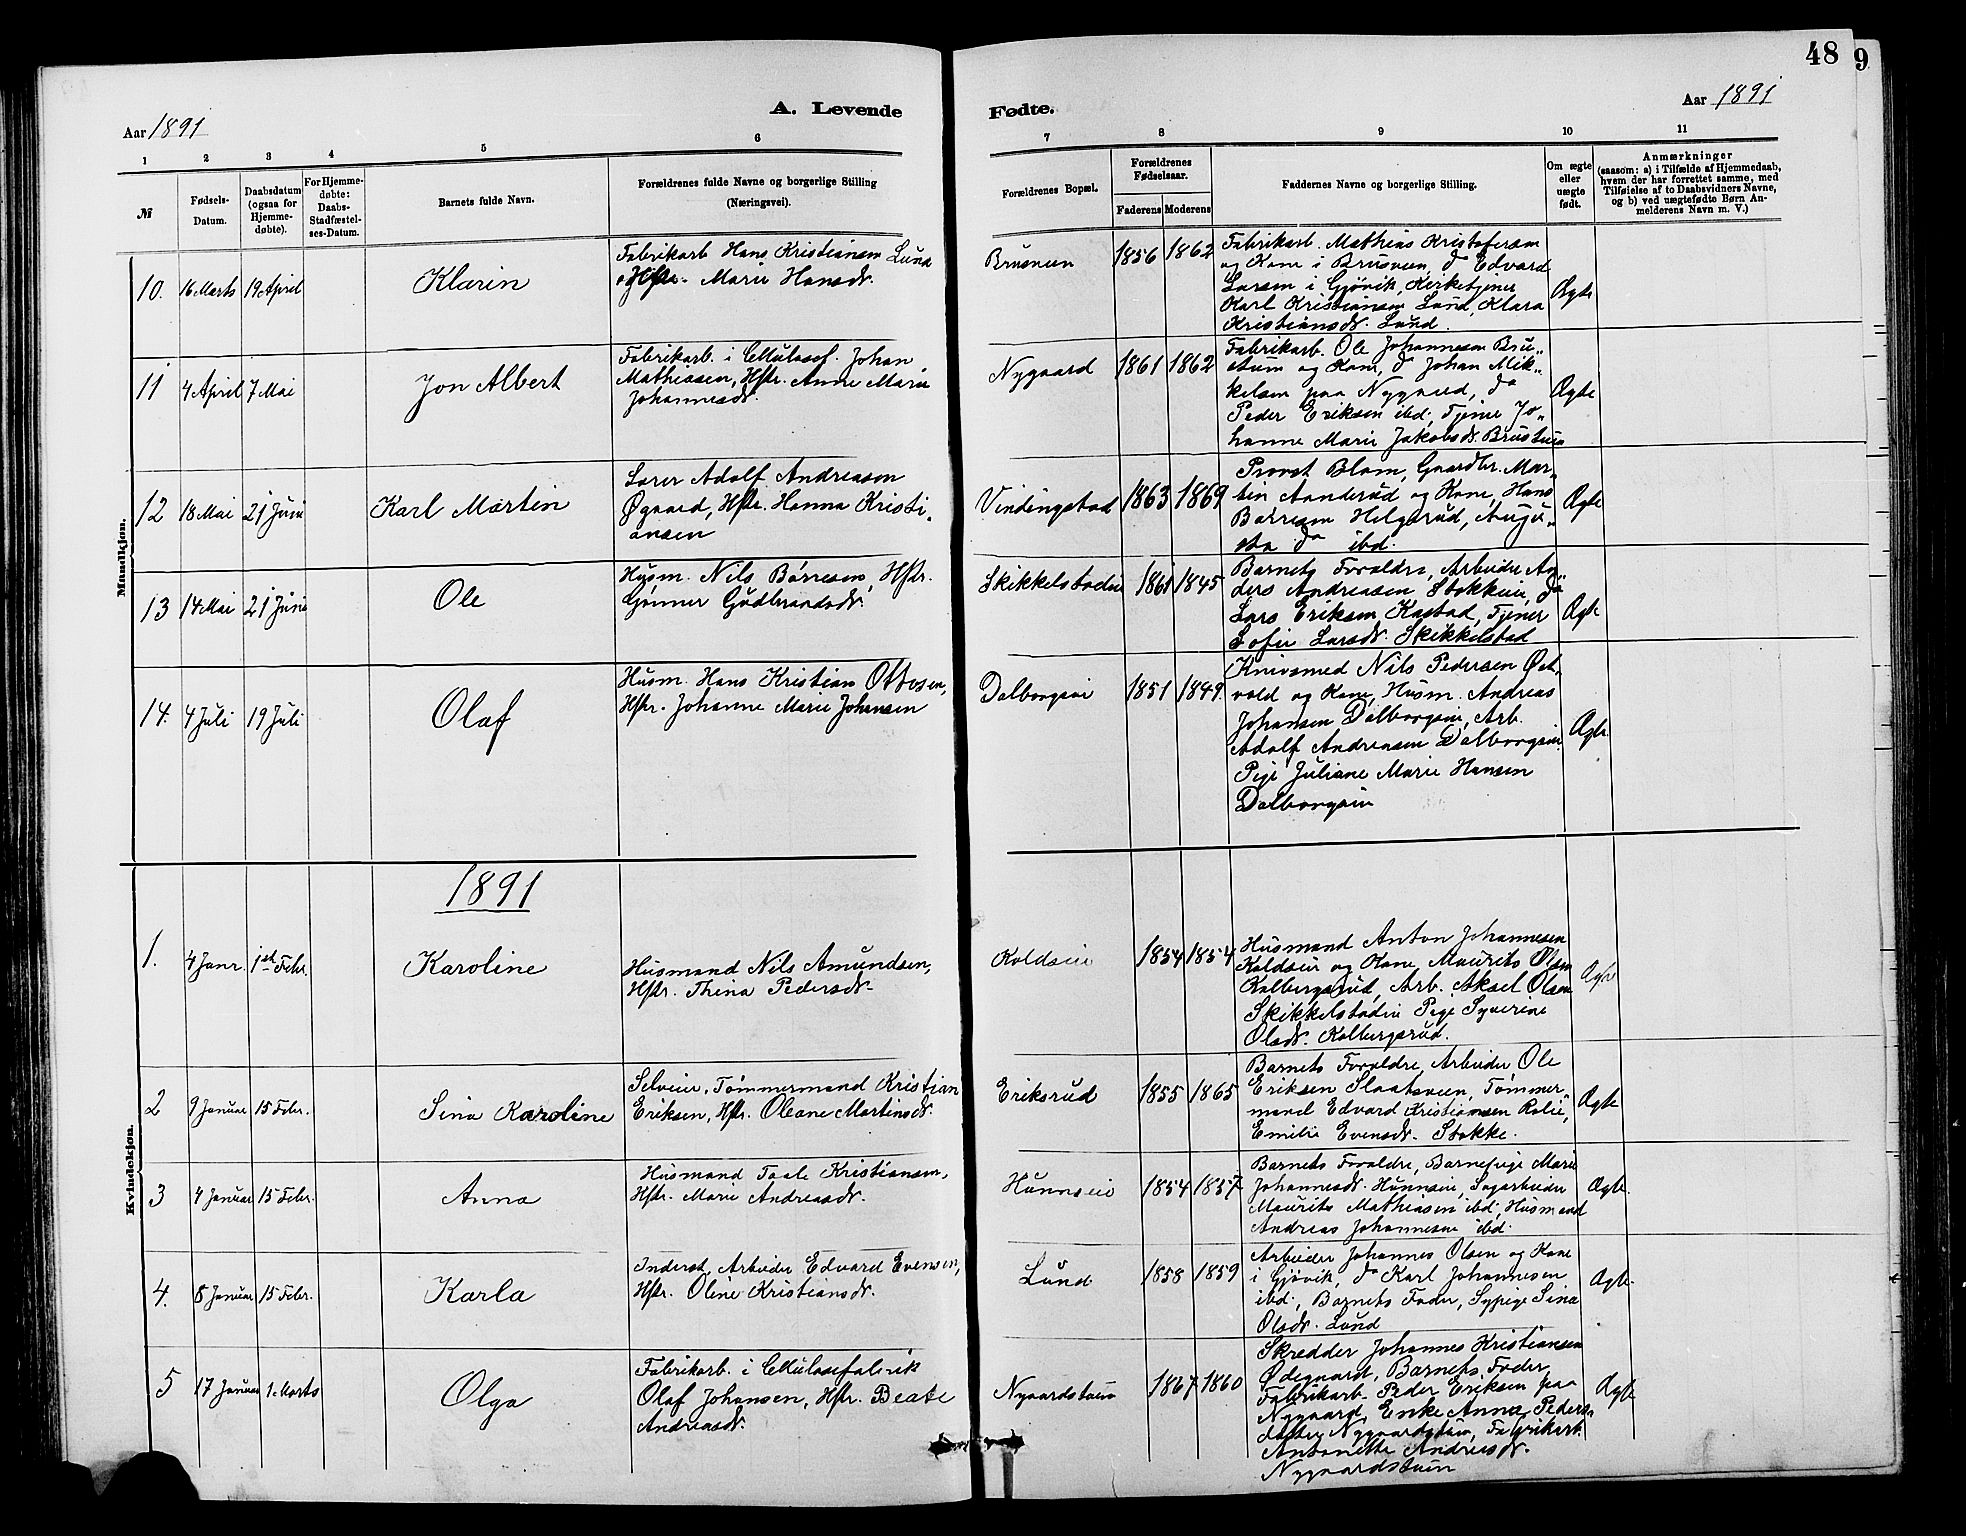 48
9
Aar 1891
A. Levende
Fødte.
Aar 1891
1 2 3 4 5 6 7 8 9 10 11
№
Fødsels-
Datum.
Daabsdatum
(ogsaa for
Hjemme-
døbte).
For Hjemme-
døbte:
Daabs-
Stadfæstel-
ses-Datum.
Barnets fulde Navn.
Forældrenes fulde Navne og borgerlige Stilling
(Næringsvei).
Forældrenes Bopæl.
Forældrenes
Fødselsaar.
Faderens Moderens
Faddernes Navne og borgerlige Stilling.
Om ægte
eller
uægte
født.
Anmærkninger
(saasom: a) i Tilfælde af Hjemmedaab,
hvem der har forrettet samme, med
Tilføielse af to Daabsvidners Navne,
og b) ved uægtefødte Børn An-
melderens Navn m. V.)
Mandkjøn.
10. 16 Marts 19 April
Klarin
Fabrikarb Hans Kristiansen Lund
Hstr. Marie Hansdr.
Brusveen
1856 1862
Fabrikarb. Mathias Kristofersen
og Kone i Brusveen, do Edvard
Larsen i Gjøvik, Kirketjener
Karl Kristiansen Lund, Klara
Kristiansdr. Lund.
Ægte
11 4 April 7 Mai
Jon Albert
Fabrikarb. i Cellulosef. Johan
Mathiassen, Hstr. Anne Marie
Johannesdr.
Nygaard
1861 1862
Fabrikarb. Ole Johannesen Bru-
stum og Kone, do Johan Mik-
kelsen paa Nygaard, do
Peder Eriksen ibd; Tjene Jo-
hanne Marie Jakobsdr. Brustuen
Ægte
12 18 Mai 21 Juni
Karl Martin
Lærer Adolf Andreasen
Øgaard, Hstr. Hanna Kristi-
ansen
Vindingstad
1863 1869
Provst Blom, Gaardbr. Mar-
tin Aanderud og Kone, Hans
Børresen Helgerud, Augu-
sta do ibd.
Ægte
13 14 Mai 21 Juni
Ole
Husm. Nils Børresen, Hstr.
Gunner Gudbrandsdr.
Skikkelstadeie
1861 1845
Barnets Forældre, Arbeider An-
ders Andreasen Stokkeie, do
Lars Eriksen Kastad, Tjener
Sofie Larsdr. Skikkelstad
Ægte
14. 4 Juli 19 Juli
Olaf
Husm. Hans Kristian Ottosen,
Hstr. Johanne Marie Johansen
Dalborgeie
1851 1849.
Knivsmed Nils Pedersen Øst-
vold og Kone, Husm. Andreas
Johansen Dalborgeie, Arb.
Adolf Andreasen Dalborgeie
Pige Juliane Marie Hansen
Dalborgeie
Ægte
Kvindekjøn.
1891
1. 4 Janr. 1ste Febr.
Karoline
Husmand Nils Amundsen,
Hstr. Thina Pedersdr.
Koldseie
1854 1854
Husmand Anton Johannesen
Koldseie og Kone, Maurits Olsen
Kolbergsrud, Arb. Aksel Olsen
Skikkelstadeie Pige Syverine
Olsdr. Kolbergsrud.
Ægte
2 9 Januar 15 Febr.
Sina Karoline
Selveier, Tømmermand Kristian
Eriksen, Hstr. Oleane Martinsdr.
Eriksrud
1855 1865
Barnets Forældre, Arbeider Ole
Eriksen Slaatsveen, Tømmer-
mand Edvard Kristiansen Rolie,
Emilie Evensdr. Stokke.
Ægte
3 4 Januar 15 Febr.
Anna
Husmand Taale Kristiansen,
Hstr. Marie Andreasdr.
Hunnseie
1854 1857
Barnets Forældre, Barnepige Marie
Johannesdr. Hunnseie, Sagarbeider
Maurits Mathiesen ibd, Husmand
Andreas Johannesen ibd.
Ægte.
4. 8 Januar 15 Febr.
Karla
Inderst, Arbeider Edvard Evensen,
Hstr. Oline Kristiansdr.
Lund
1858 1859
Arbeider Johannes Olsen og Kone
i Gjøvik, do Karl Johannesen
ibd, Barnets Fader, Sypige Sina
Olsdr. Lund
Ægte.
5 17 Januar 1 Marts
Olga
Fabrikarb. i Cellulosefabrik
Olaf Johansen, Hstr. Beate
Andreasdr.
Nygaardstuen
1867 1860
Skredder Johannes Kristiansen
Ødegaard, Barnets Fader,
Fabrikarb. Peder Eriksen paa
Nygaard, Enke Anna Peders-
datter Nygaardstuen, Fabrikarb.
Antonette Andreasdr.
Nygaardstuen
Ægte